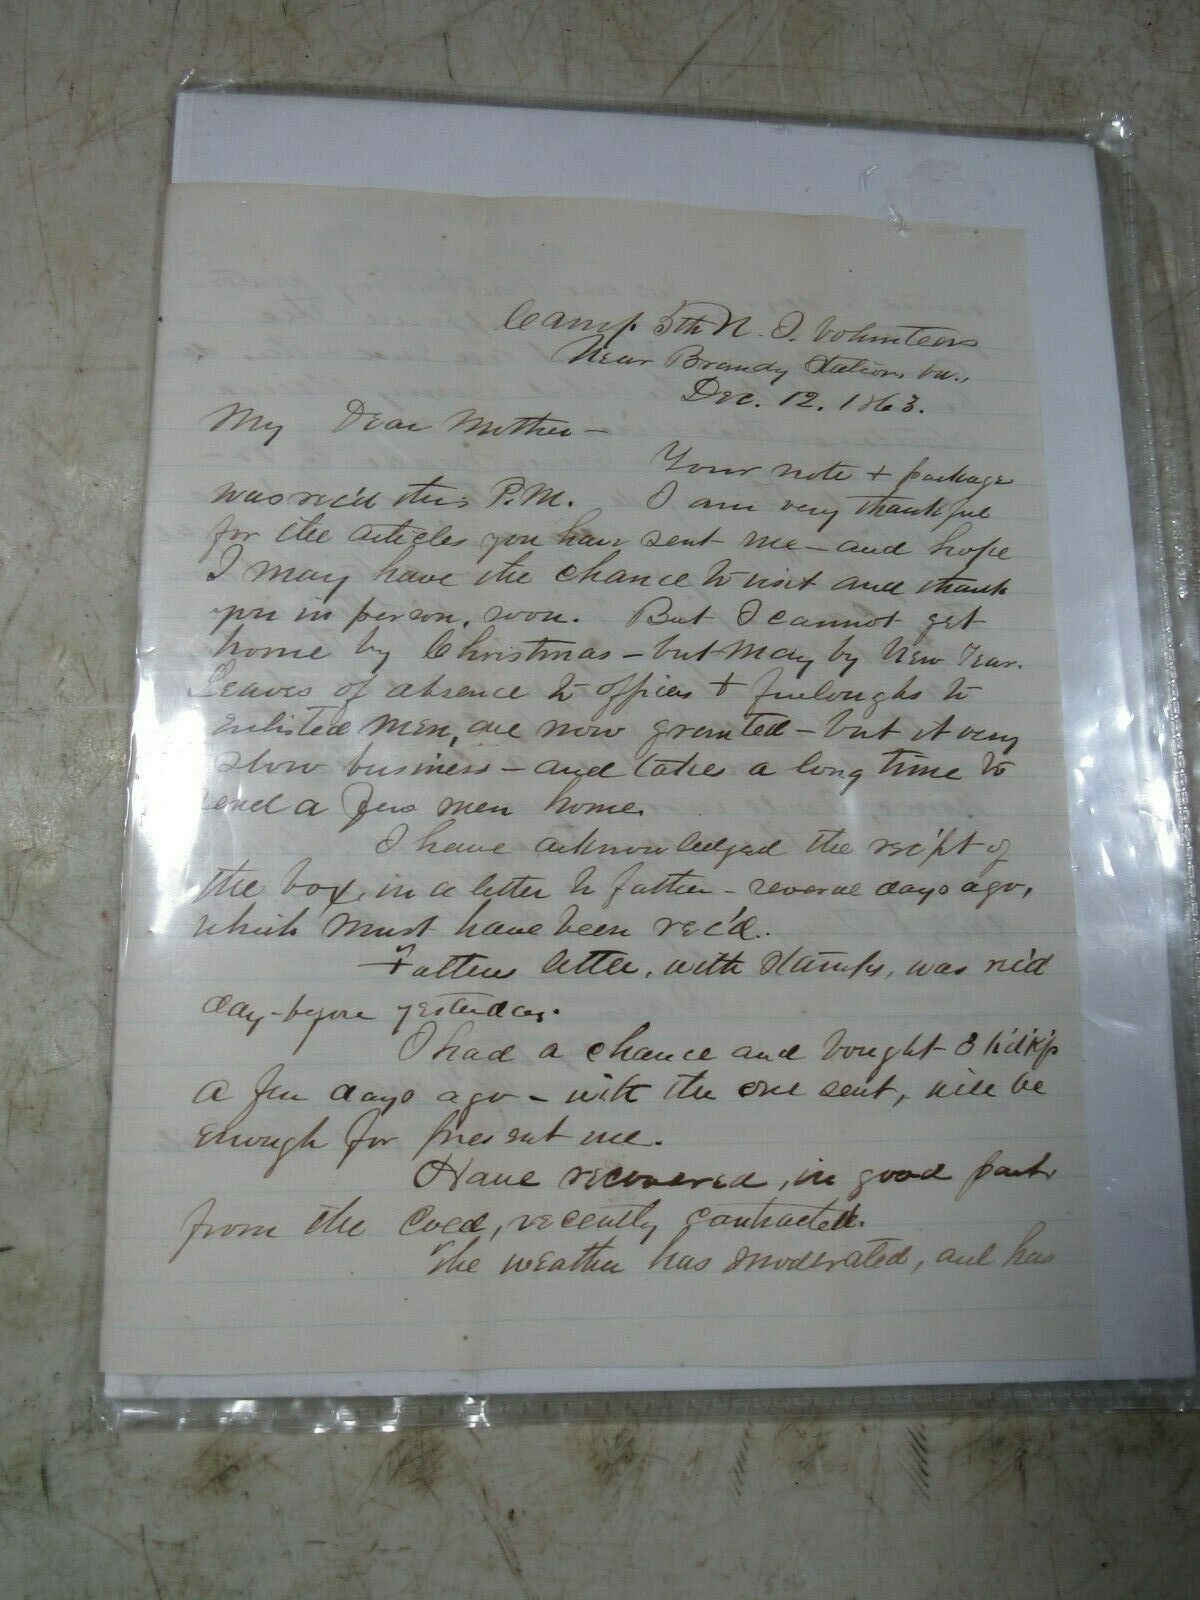 Camp 5th N. J. Volunteers
Near Brandy Station, Va.,
Dec. 12. 1863.
My Dear Mother—
Your note + package
was rec'd this P.M. I am very thankful
for the articles you have sent me — and hope
I may have the chance to visit and thank
you in person, soon. But I cannot get
home by Christmas — but may by New Year.
Leaves of absence to officers + furloughs to
enlisted men, are now granted — but it very
slow business — and takes a long time to
send a few men home.
I have acknowledged the rec'pt of
the box, in a letter to father — several days ago,
which must have been rec'd.
Fathers letter, with stamps, was rec'd
day-before yesterday.
I had a chance and bought 3 h'd'k'fs
a few days ago — with the one sent, will be
enough for present use.
Have recovered, in good part,
from the cold, recently contracted.
The weather has moderated, and has